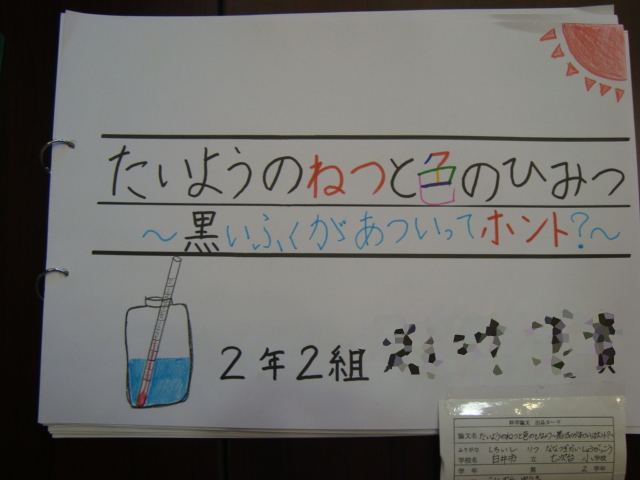 たいようのねつと色のひみつ
～黒いふくがあついってホント?～
2年2組
科学論文 出品カード
論文名 たいようのねつと色のひみつ～黒いふくがあついってホント?～
ふりがな
学校名 白井市 立 七次台 小学校
学年 第 2 学年